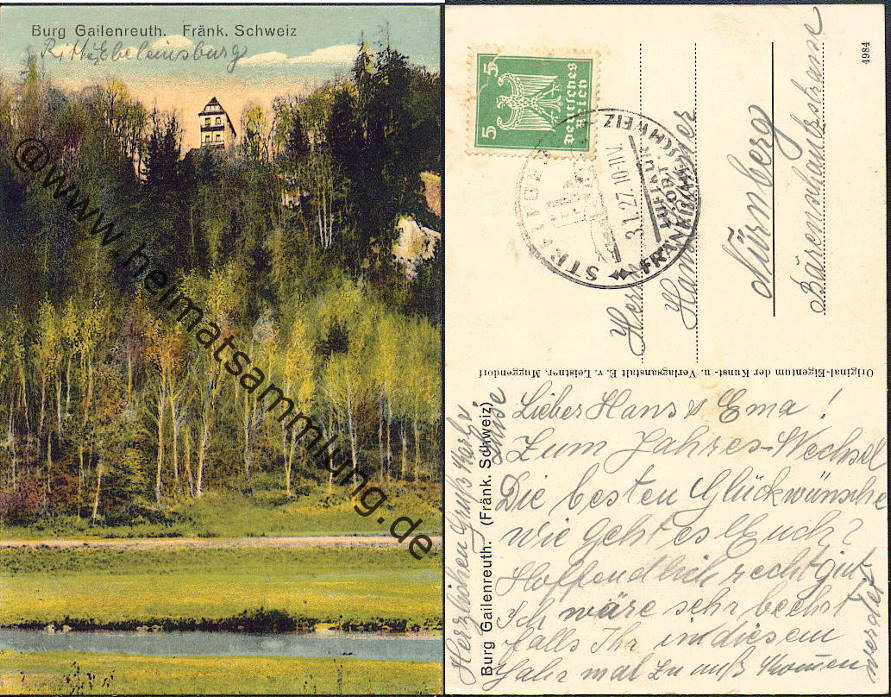 Burg Gailenreuth. Fränk. Schweiz
Ritt. Ebeleinsburg
@www.heimatsammlung.de
4984
5 5
Deutsches
Reich
STREITBERG
3.1.27.10-11V.
LUFTKURORT
FRÄNKISCHE SCHWEIZ
Herrn
Hans
Nürnberg
Bärenschanzstrasse
Original-Eigentum der Kunst- u. Verlagsanstalt E. v. Leistner, Muggendorf
Burg Gailenreuth. (Fränk. Schweiz)
Lieber Hans & Ema!
Zum Jahres-Wechsel
Die besten Glückwünsche
wie geht es Euch?
Hoffendlich recht gut
Ich wäre sehr
falls Ihr in diesem
Jahr mal zu uns komen
werdet
Herzlichen Gruß